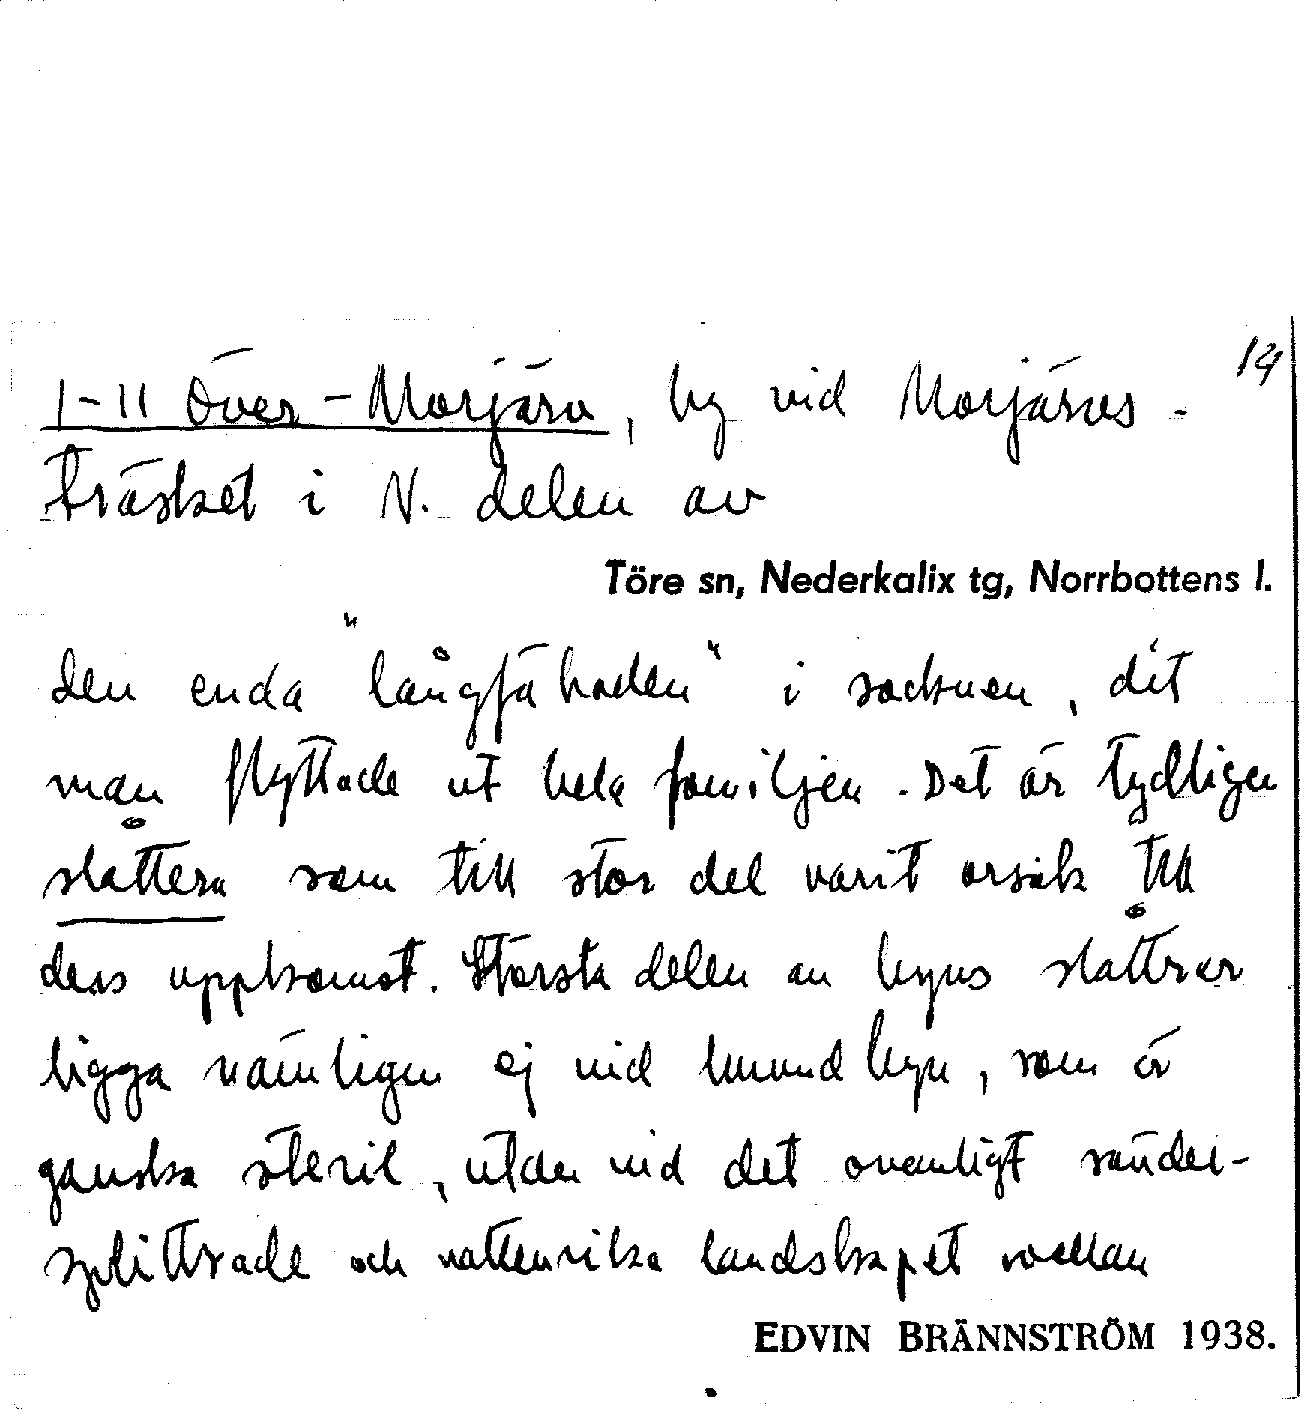 14
1-11 Över-Morjärv, by vid Morjärvs-
träsket i N. delen av
Töre sn, Nederkalix tg, Norrbottens l.
den enda "långfäboden" i socknen, dit
man flyttade ut hela familjen. Det är tydligen
slåttern som till stor del varit orsak till
dess uppkomst. Största delen av byns slåttrar
ligga nämligen ej vid huvudbyn, som är
ganska steril, utan vid det ovanligt sönder-
splittrade och vattenrika landskapet mellan
EDVIN BRÄNNSTRÖM 1938.